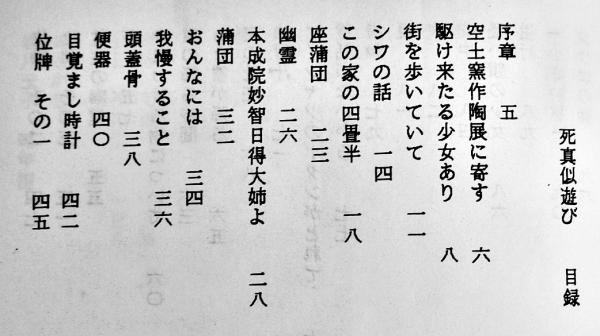 死真似遊び　目録
序章　五
空土窯作陶展に寄す　六
駆け来たる少女あり　八
街を歩いていて　一一
シワの話　一四
この家の四畳半　一八
座蒲団　二三
幽霊　二六
本成院妙智日得大姉よ　二八
蒲団　三二
おんなには　三四
我慢すること　三六
頭蓋骨　三八
便器　四〇
目覚まし時計　四二
位牌　その一　四五